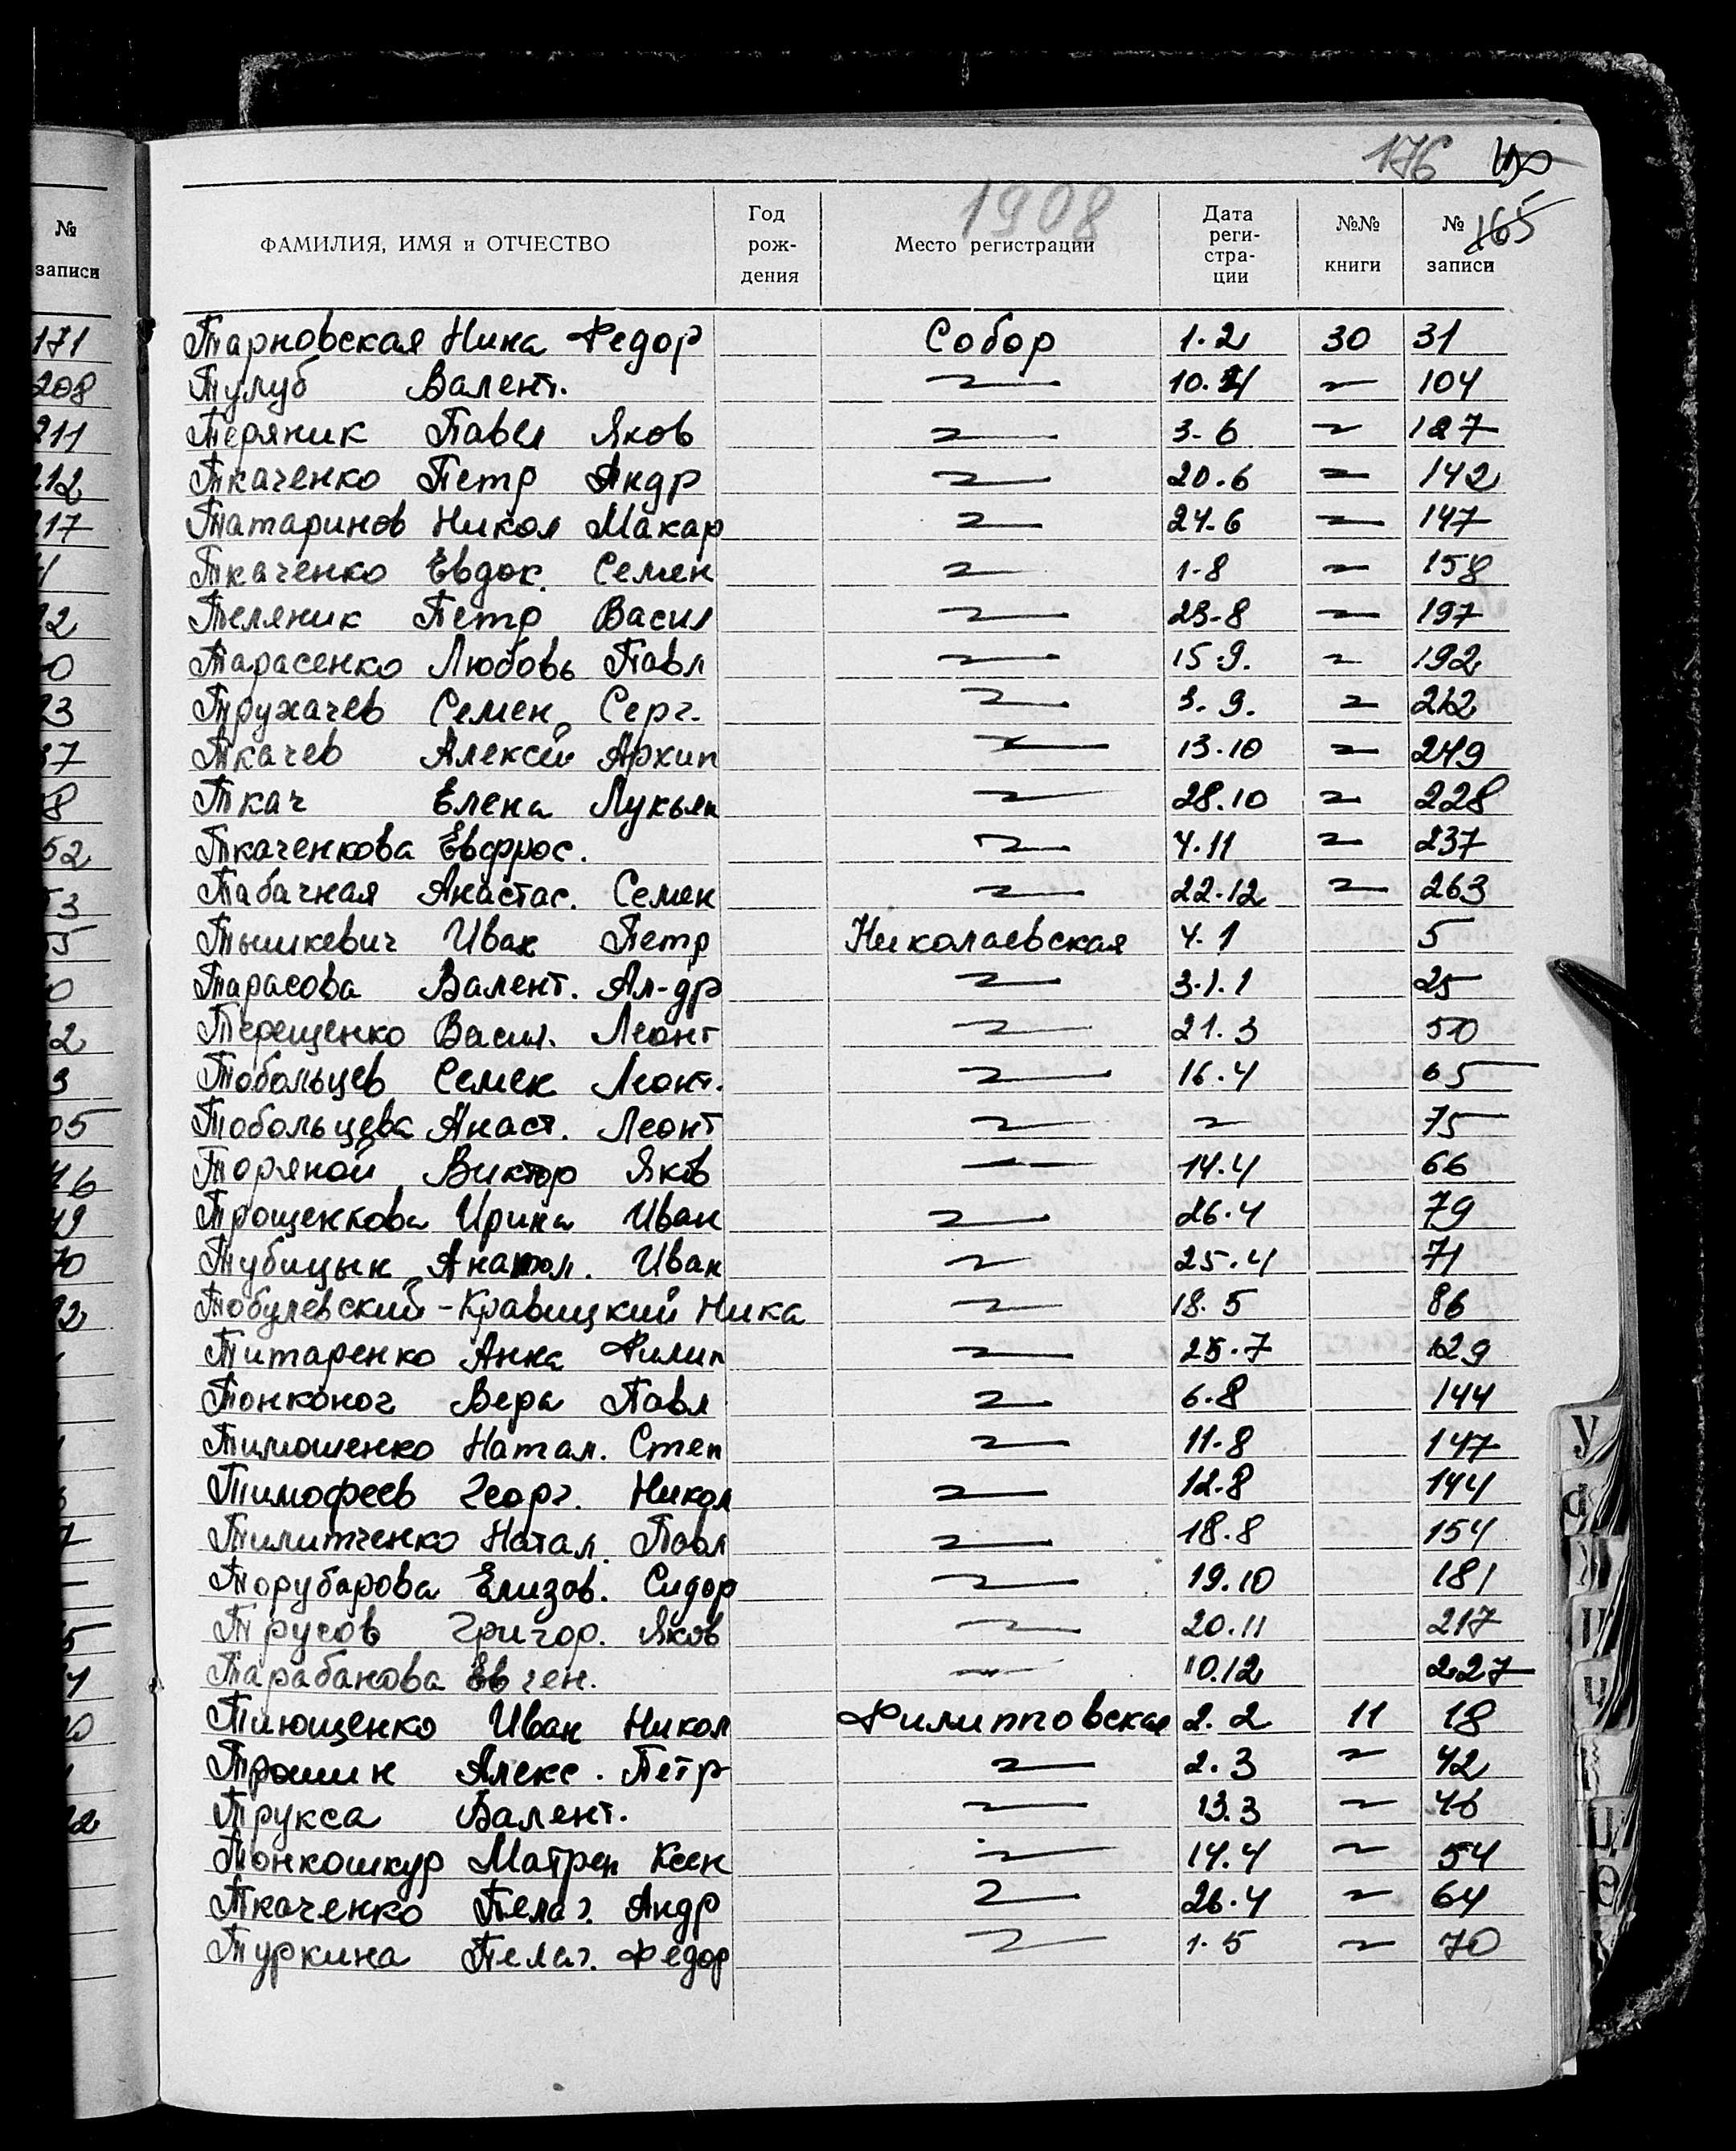 176
1908
165
№ записи
ФАМИЛИЯ, ИМЯ и ОТЧЕСТВО Год рождения Место регистрации Дата регистрации №№ книги № записи
Тарновская Нина Федор Собор 1.2 30 31
Тулуб Валент. 10.4 104
Теряник Павел Яков 3.6 127
Ткаченко Петр Андр 20.6 142
Татаринов Никол Макар 24.6 147
Ткаченко Евдок. Семен 1-8 158
Теляник Петр Васил 23-8 197
Тарасенко Любовь Павл 15.9. 192
Тружачев Семен Серг. 3.9. 212
Ткачев Алексей Архип 13.10 219
Ткач Елена Лукьян 28.10 228
Ткаченкова Евфрос. 4.11 237
Табачная Анастас. Семен 22.12 263
Тышкевич Иван Петр Николаевская 4.1 5
Тарасова Валент. Ал-др 31.1 25
Терещенко Васил. Леонт 21.3 50
Тобольцев Семен Леонт. 16.4 65
Тобольцева Анаст. Леонт 75
Торяной Виктор Яков 14.4 66
Трощенкова Ирина Иван 26.4 79
Тубицын Анатол. Иван 25.4 71
Тобулевский-Кравицкий Ника 18.5 86
Титаренко Анна Филип 25.7 129
Тонконог Вера Павл 6.8 144
Тимошенко Натал. Степ 11.8 147
Тимофеев Георг. Никол 12.8 144
Тилитченко Натал. Павл 18.8 154
Торубарова Елизов. Сидор 19.10 181
Трусов Григор. Яков 20.11 217
Тарабанова Евген. 10.12 227
Тнющенко Иван Никол Филипповская 2.2 11 18
Трошин Алекс. Петр 2.3 42
Трукса Валент. 13.3 46
Тонкошкур Матрен Ксен 14.4 54
Ткаченко Пелаг. Андр 26.4 64
Туркина Пелаг. Федор 1.5 70